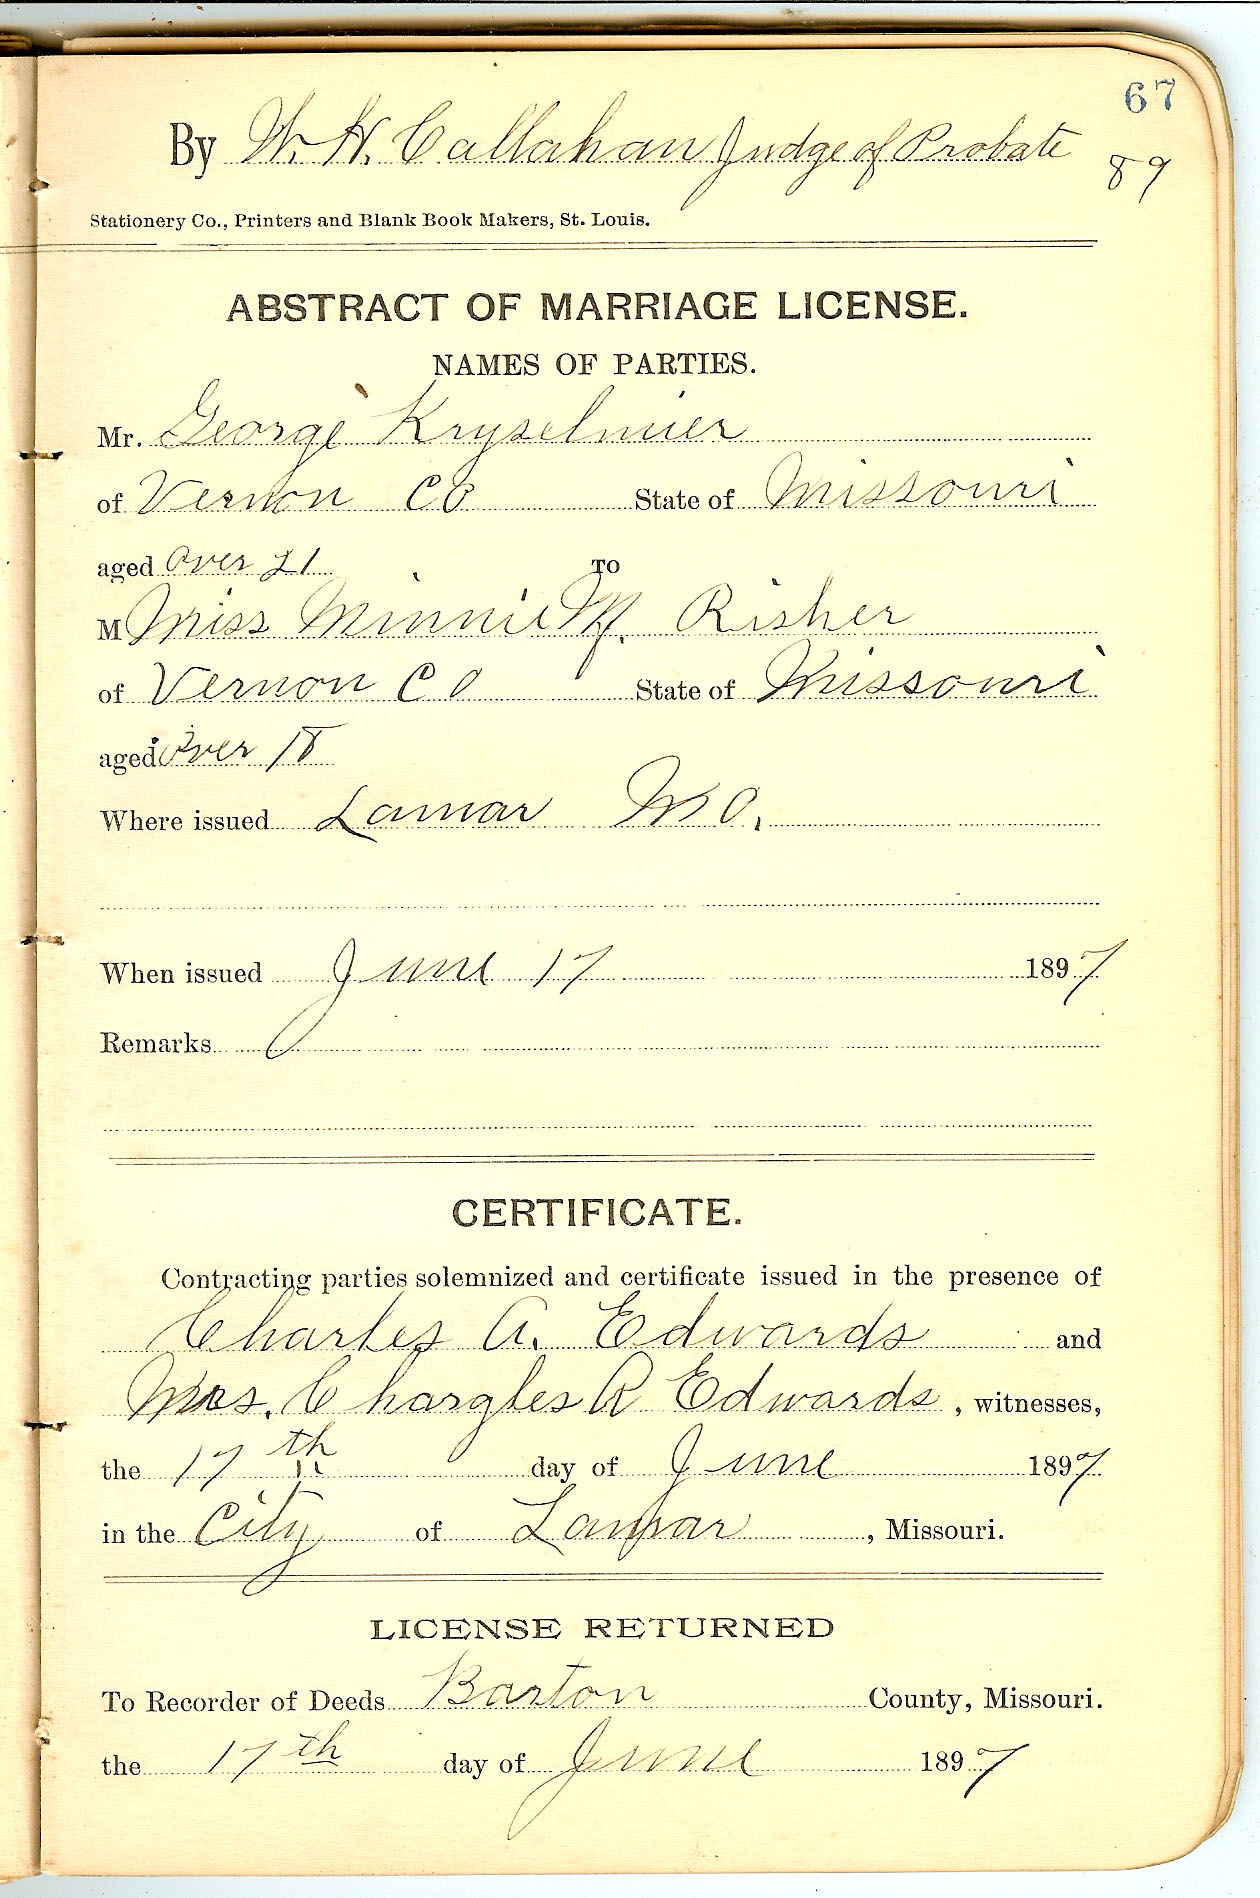 67
By W. H. Callahan Judge of Probate
89
Stationery Co., Printers and Blank Book Makers, St. Louis.
ABSTRACT OF MARRIAGE LICENSE.
NAMES OF PARTIES.
Mr. George Kryselmier
of Vernon Co State of Missouri
aged over 21 TO
M Miss Minnie M. Risher
of Vernon Co State of Missouri
aged over 18
Where issued Lamar Mo.
When issued June 17 1897
Remarks
CERTIFICATE.
Contracting parties solemnized and certificate issued in the presence of
Charles A. Edwards and
Mrs. Chargles R Edwards, witnesses,
the 17th day of June 1897
in the City of Lamar, Missouri.
LICENSE RETURNED
To Recorder of Deeds Barton County, Missouri.
the 17th day of June 1897